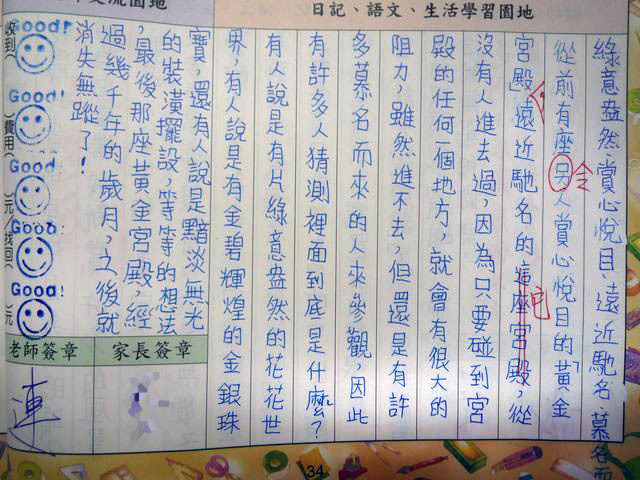 交流園地
日記、語文、生活學習園地
綠意盎然、賞心悅目、遠近馳名、慕名而
從前有座另人賞心悅目的「黃金
令
宮殿遠近馳名的這座宮殿,從
它
沒有人進去過,因為只要碰到宮
殿的任何一個地方,就會有很大的
阻力,雖然進不去,但還是有許
多慕名而來的人來參觀,因此
有許多人猜測裡面到底是什麼?
有人說是有片綠意盎然的花花世
界,有人說是有金碧輝煌的金銀珠
寶,還有人說是黯淡無光
的裝潢擺設,等等的想法
,最後那座黃金宮殿,經
過幾千年的歲月,之後就
消失無蹤了!
收到
費用
元/找回
元
Good!
Good!
Good!
Good!
家長簽章
老師簽章
連
34